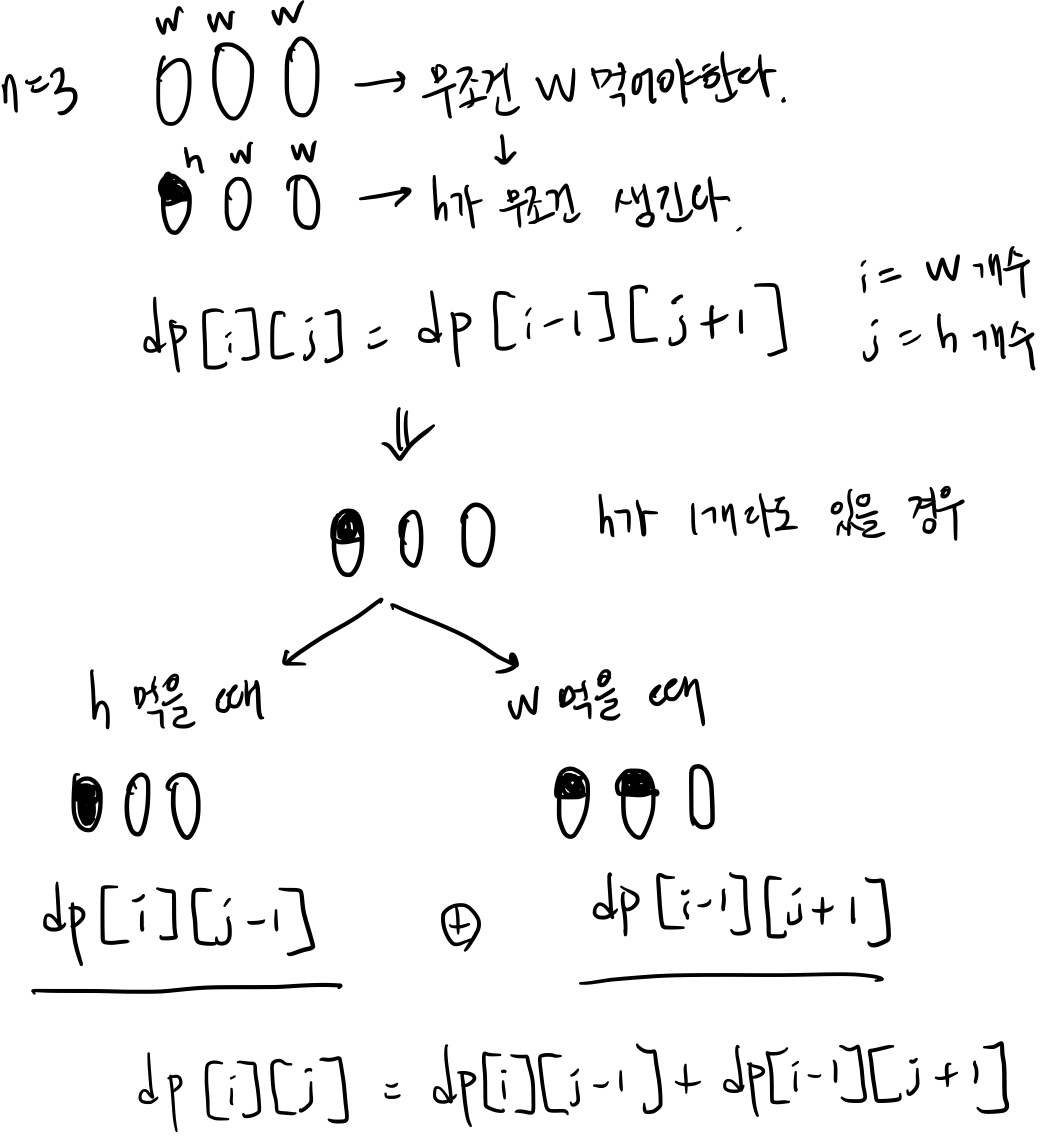 w w w
n=3 → 무조건 w 먹어야한다.
↓
h w w
→ h가 무조건 생긴다.
i = w 개수
dp[i][j] = dp[i-1][j+1]
j = h 개수
⇓
h가 1개라도 있을 경우
h 먹을 때 w 먹을 때
dp[i][j-1] ⊕ dp[i-1][j+1]
dp[i][j] = dp[i][j-1] + dp[i-1][j+1]